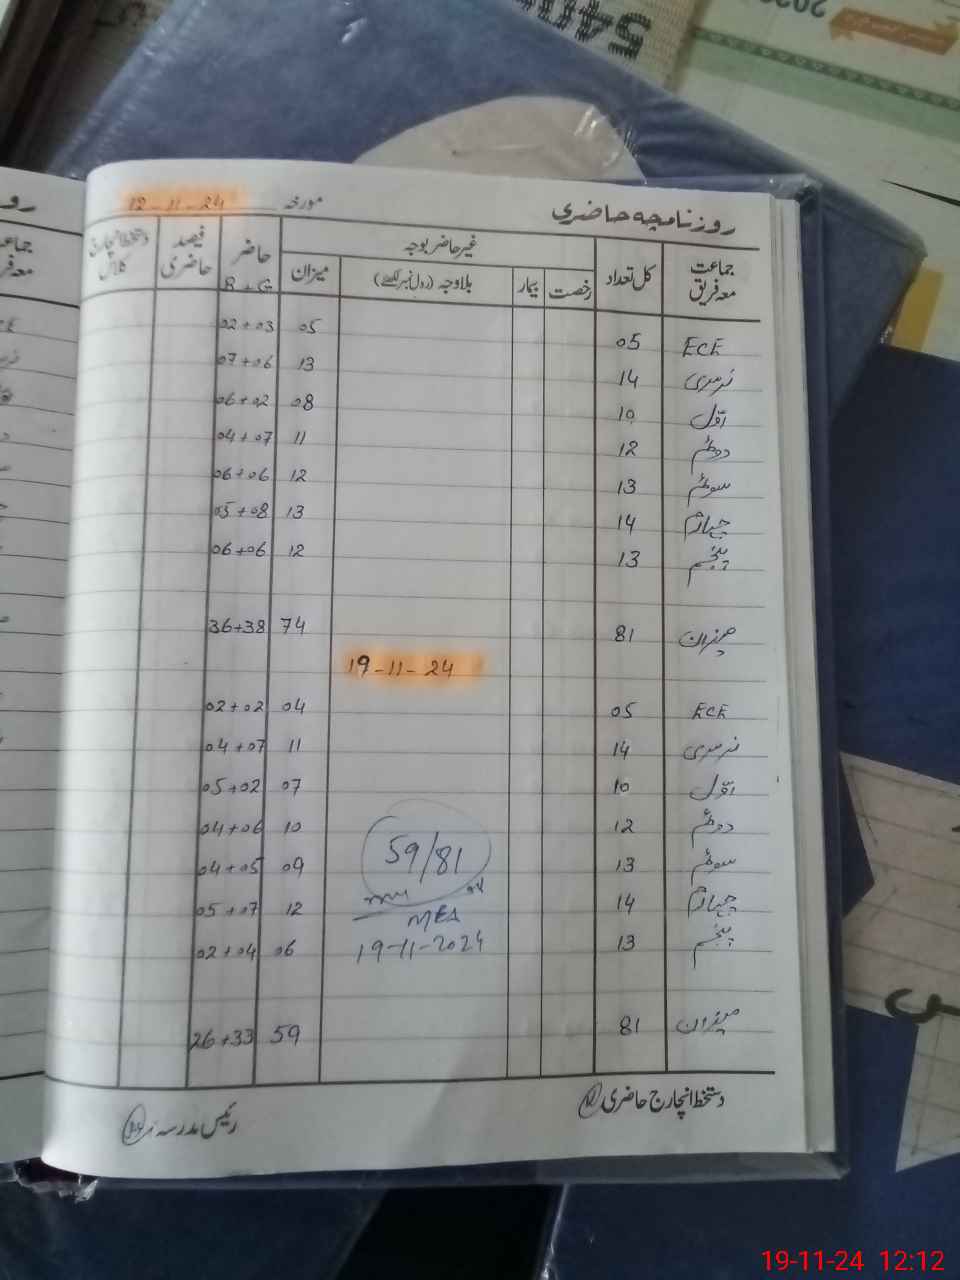 روزنامچہ حاضری مورخہ 12-11-24
جماعت معہ فریق کل تعداد غیر حاضر بوجہ حاضر فیصد حاضری دستخط انچارج کلاس
رخصت بیمار بلاوجہ (رول نمبر لکھئے) میزان B + G
ECE 05 05 02+03
نرسری 14 13 07+06
اوّل 10 08 06+02
دوئم 12 11 04+07
سوئم 13 12 06+06
چہارم 14 13 05+08
پنجم 13 12 06+06
میزان 81 74 36+38
19-11-24
ECE 05 04 02+02
نرسری 14 11 04+07
اوّل 10 07 05+02
دوئم 12 10 04+06
سوئم 13 09 04+05
چہارم 14 12 05+07
پنجم 13 06 02+04
میزان 81 59 26+33
59/81
MEA
19-11-2024
دستخط انچارج حاضری
رئیس مدرسہ
19-11-24 12:12